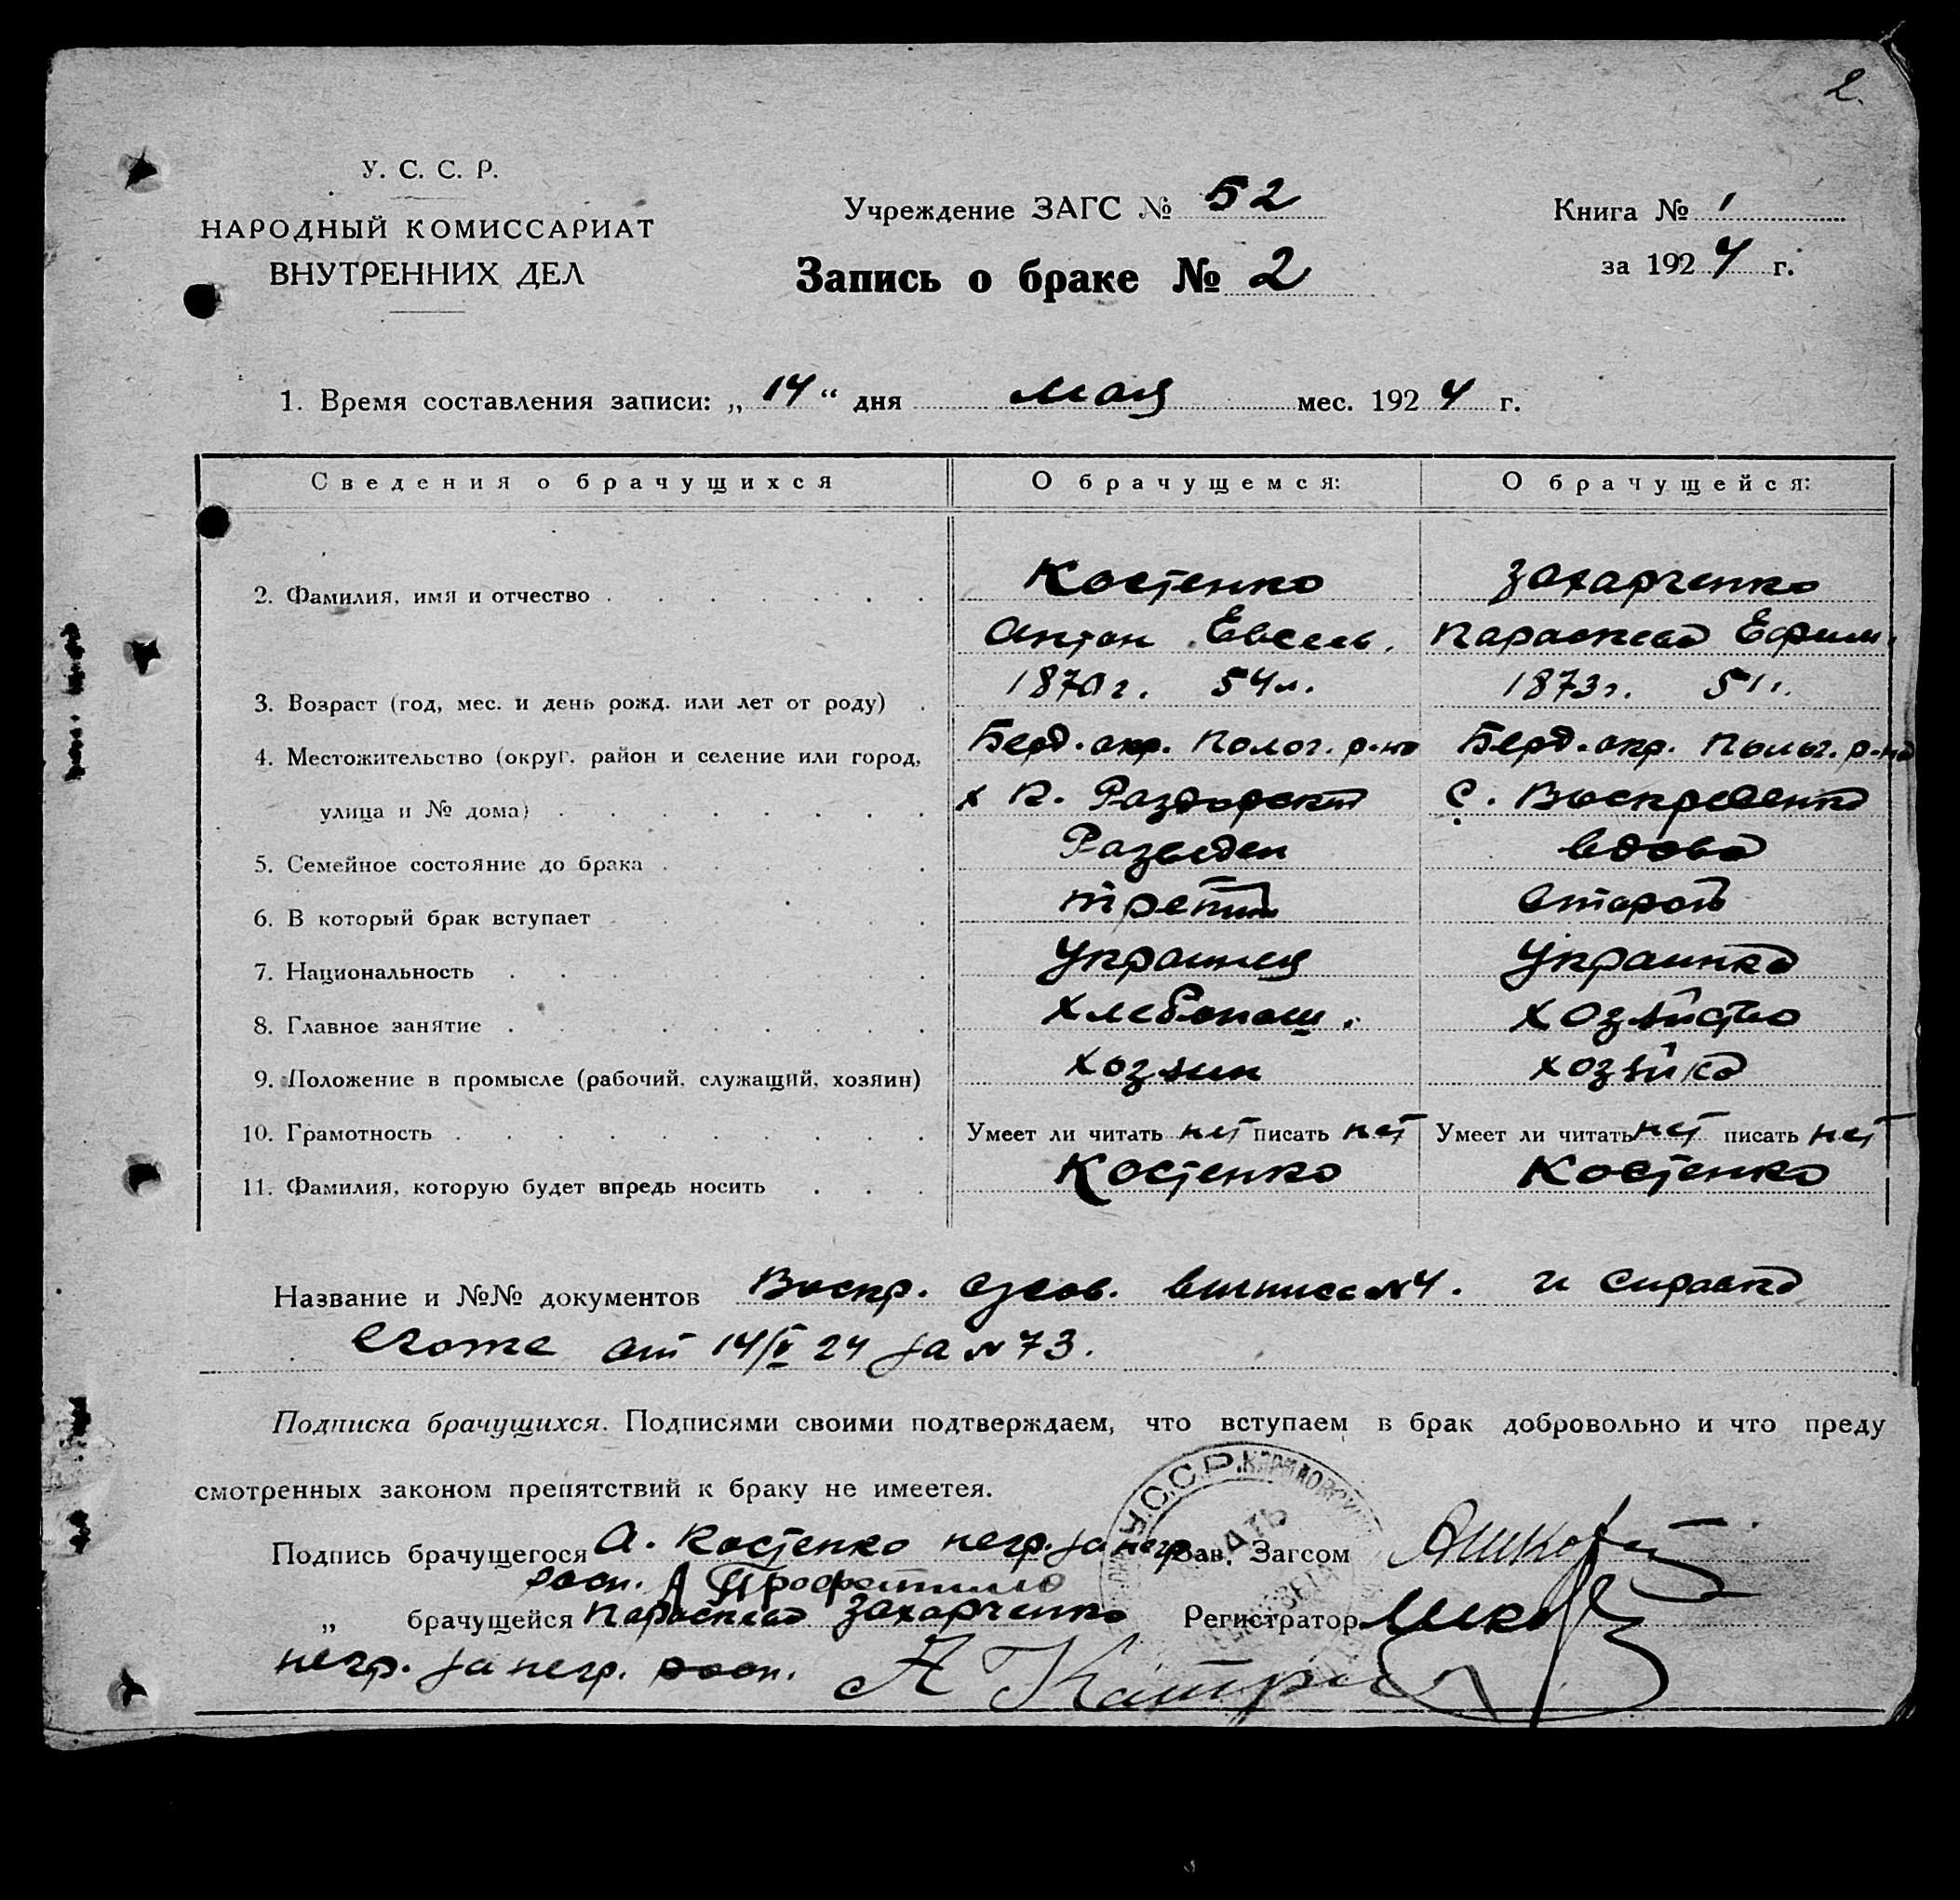 2.
У. С. С. Р.
НАРОДНЫЙ КОМИССАРИАТ
ВНУТРЕННИХ ДЕЛ
Учреждение ЗАГС № 52
Запись о браке № 2
Книга № 1
за 1924 г.
1. Время составления записи: „14“ дня мая мес. 1924 г.
Сведения о брачущихся О брачущемся: О брачущейся:
2. Фамилия, имя и отчество Костенко Захарченко
Антон Евсеев. Параскева Ефим.
3. Возраст (год, мес. и день рожд. или лет от роду) 1870 г. 54 л. 1873 г. 51 г.
4. Местожительство (округ, район и селение или город, Берд. окр. Полог. р-на Берд. окр. Полог. р-на
улица и № дома) х К. С. Воскресенка
5. Семейное состояние до брака Разведен вдова
6. В который брак вступает третий второй
7. Национальность Украинец Украинка
8. Главное занятие Хлебопаш. Хозяйство
9. Положение в промысле (рабочий, служащий, хозяин) хозяин хозяйка
10. Грамотность Умеет ли читать нет писать нет Умеет ли читать нет писать нет
11. Фамилия, которую будет впредь носить Костенко Костенко
Название и №№ документов Воскр. выписк №4. и Справка
от 14/V 24 за №73.
Подписка брачущихся. Подписями своими подтверждаем, что вступаем в брак добровольно и что преду
смотренных законом препятствий к браку не имеется.
Подпись брачущегося А. Костенко негр. за негр. Зав. Загсом
росп.
„ брачущейся Параскева Захарченко Регистратор
негр. за негр. росп.
У.С.С.Р.